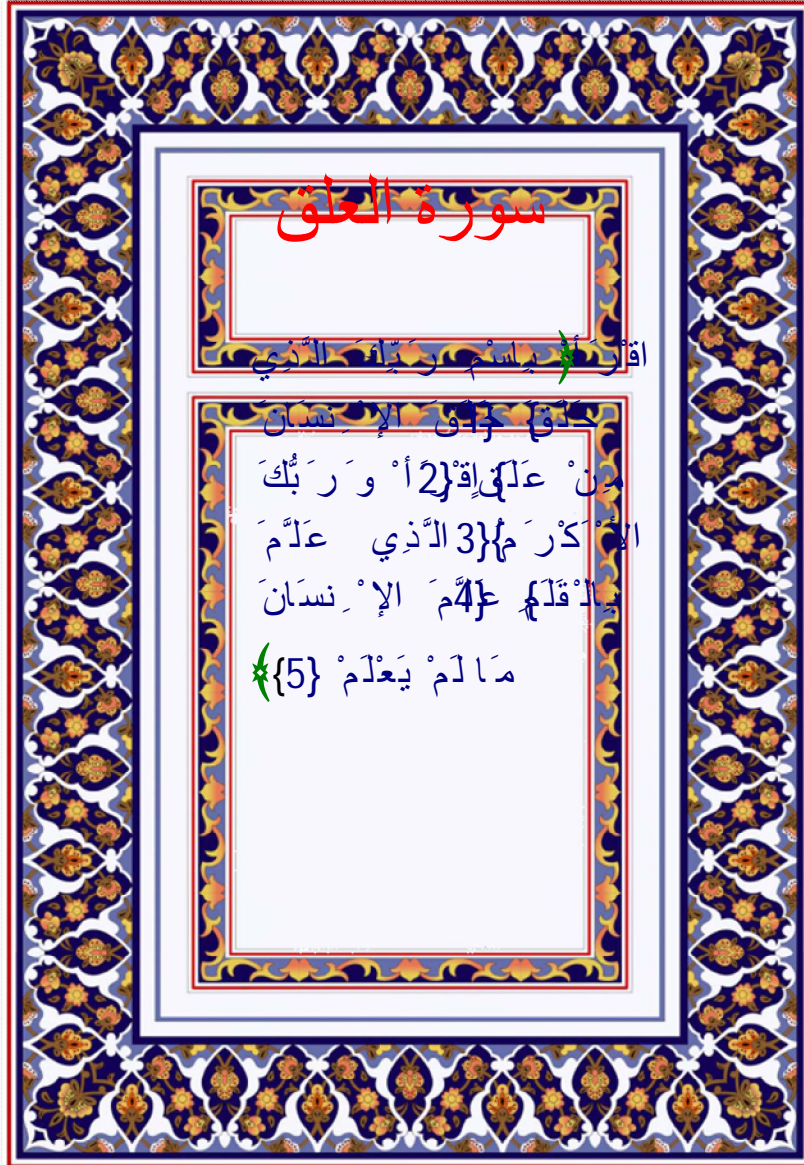 سورة العلق
﴿اقْرَأْ بِاسْمِ رَبِّكَ الَّذِي
خَلَقَ {1} خَلَقَ الإِنسَانَ
مِنْ عَلَقٍ {2} اقْرَأْ وَرَبُّكَ
الأَكْرَمُ {3} الَّذِي عَلَّمَ
بِالْقَلَمِ {4} عَلَّمَ الإِنسَانَ
مَا لَمْ يَعْلَمْ {5}﴾